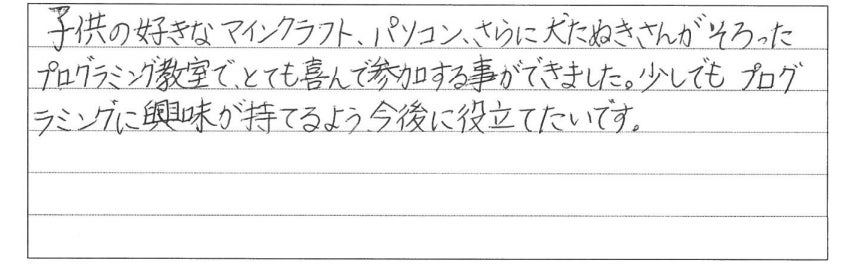 子供の好きなマインクラフト、パソコン、さらに犬たぬきさんがそろった
プログラミング教室で、とても喜んで参加する事ができました。少しでも プログ
ラミングに興味が持てるよう今後に役立てたいです。